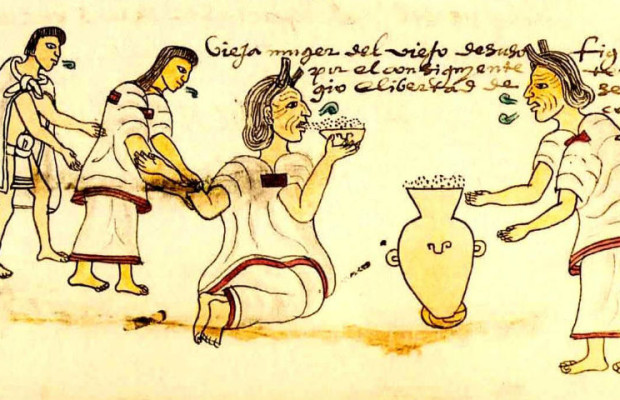 Vieja muger del viejo desuso
por el consiguiente
gio e libertad de
Fig
te
se